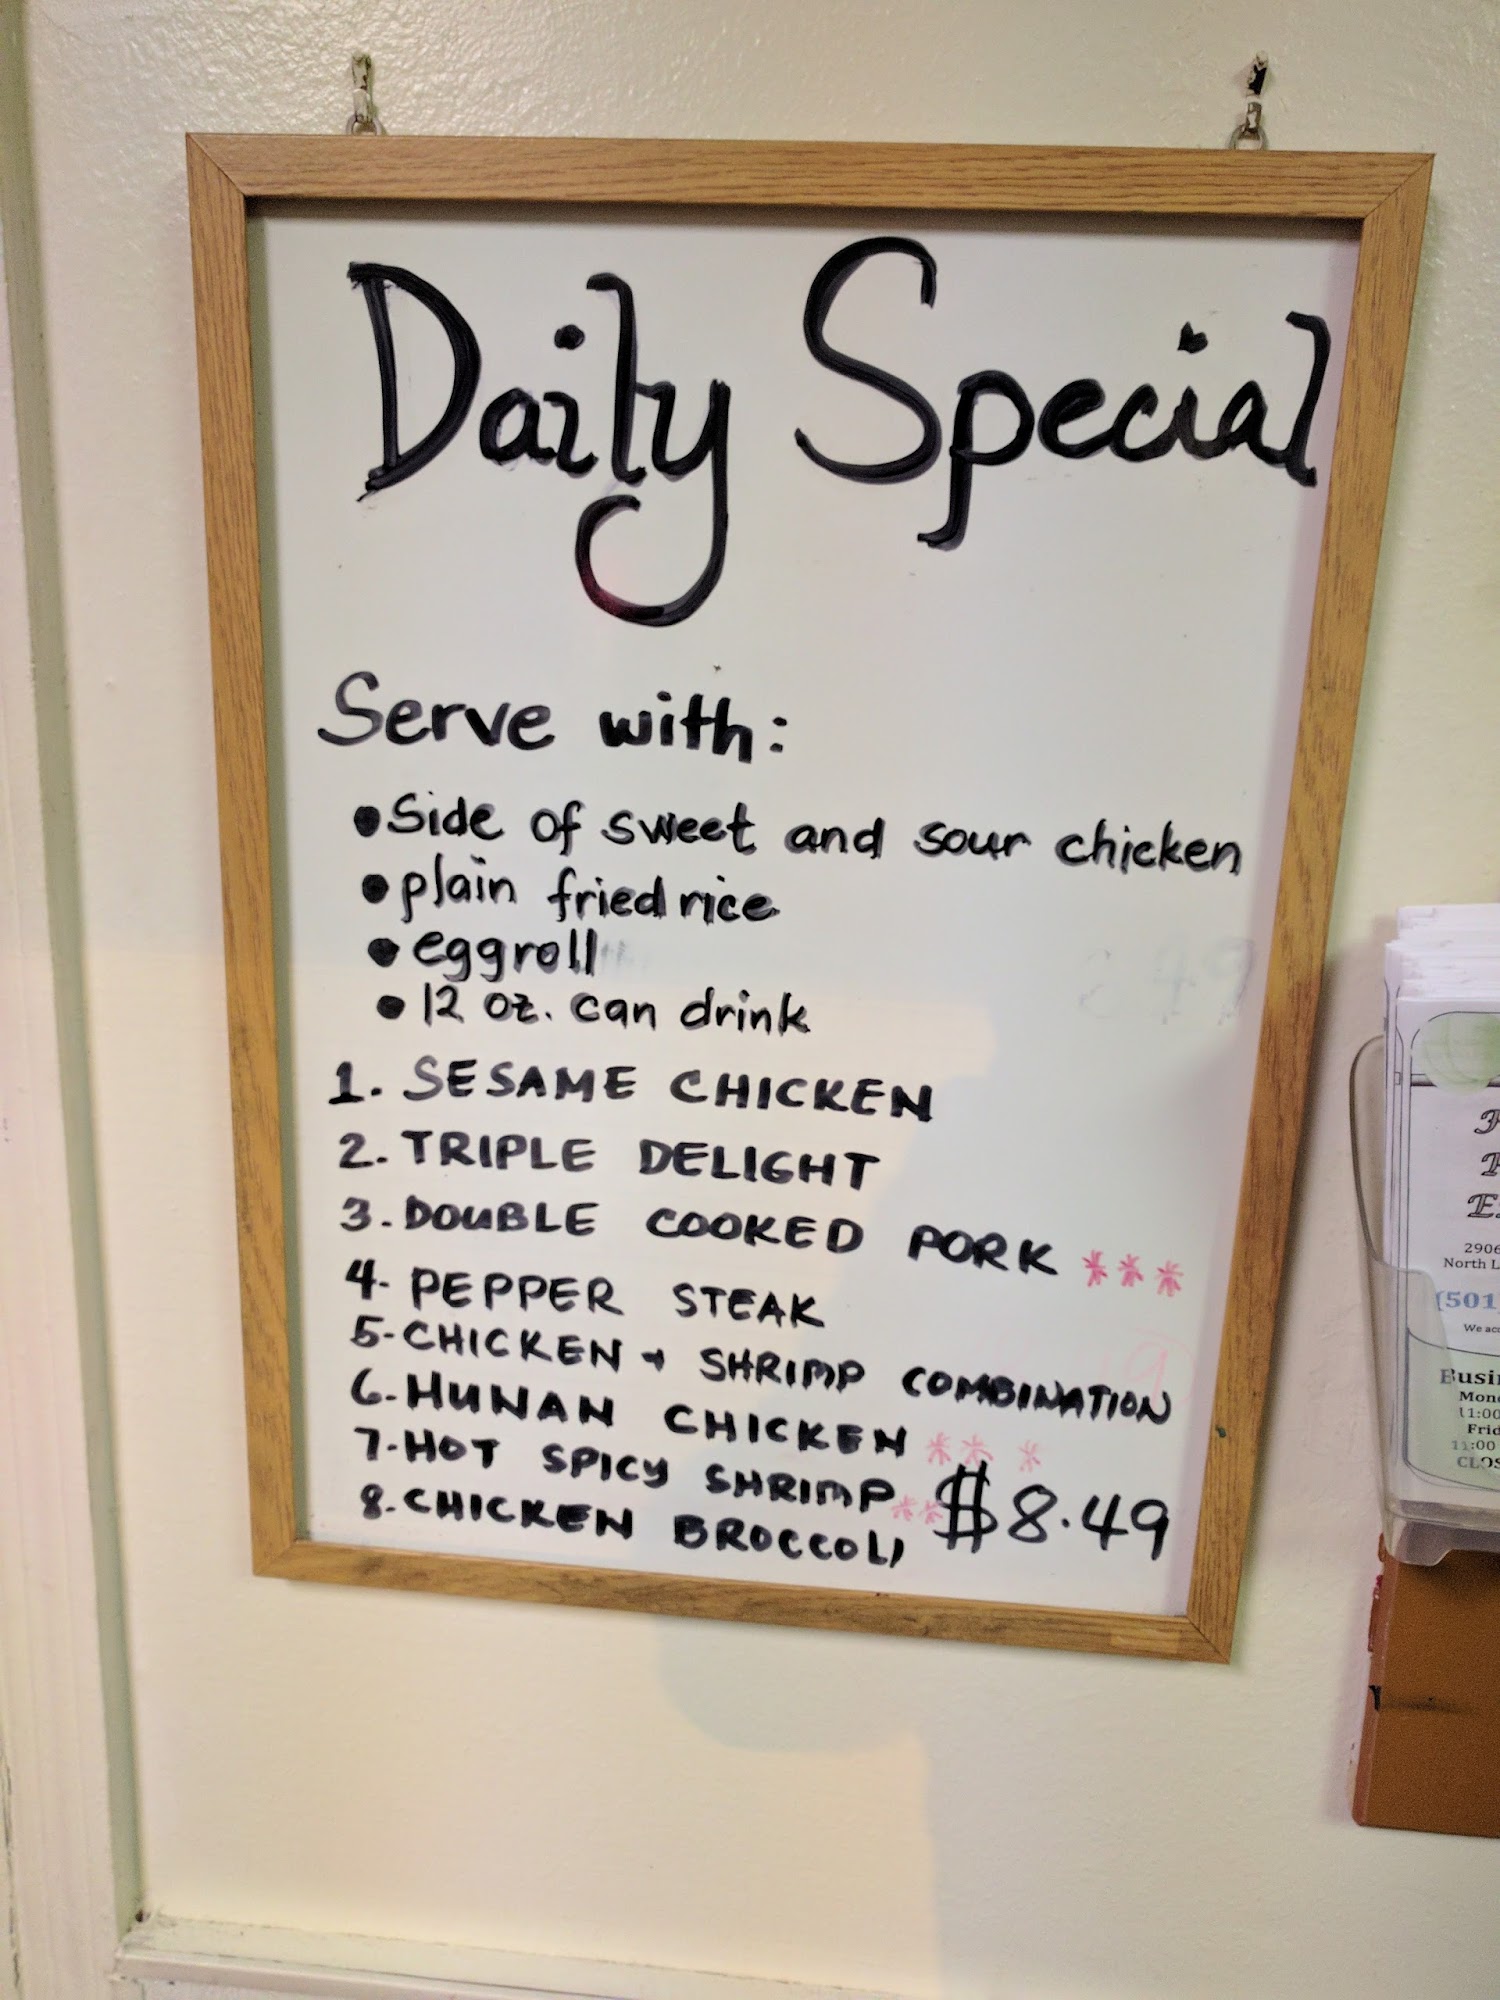 Daily Special
Serve with:
• Side of sweet and sour chicken
• plain fried rice
• eggroll
• 12 oz. can drink
1. SESAME CHICKEN
2. TRIPLE DELIGHT
3. DOUBLE COOKED PORK ***
4- PEPPER STEAK
5- CHICKEN + SHRIMP COMBINATION
6. HUNAN CHICKEN ***
7- HOT SPICY SHRIMP **
8. CHICKEN BROCCOLI $8.49
2906
North L
(501
We acc
Busi
Mon
11:00
Frid
11:00
CLOS